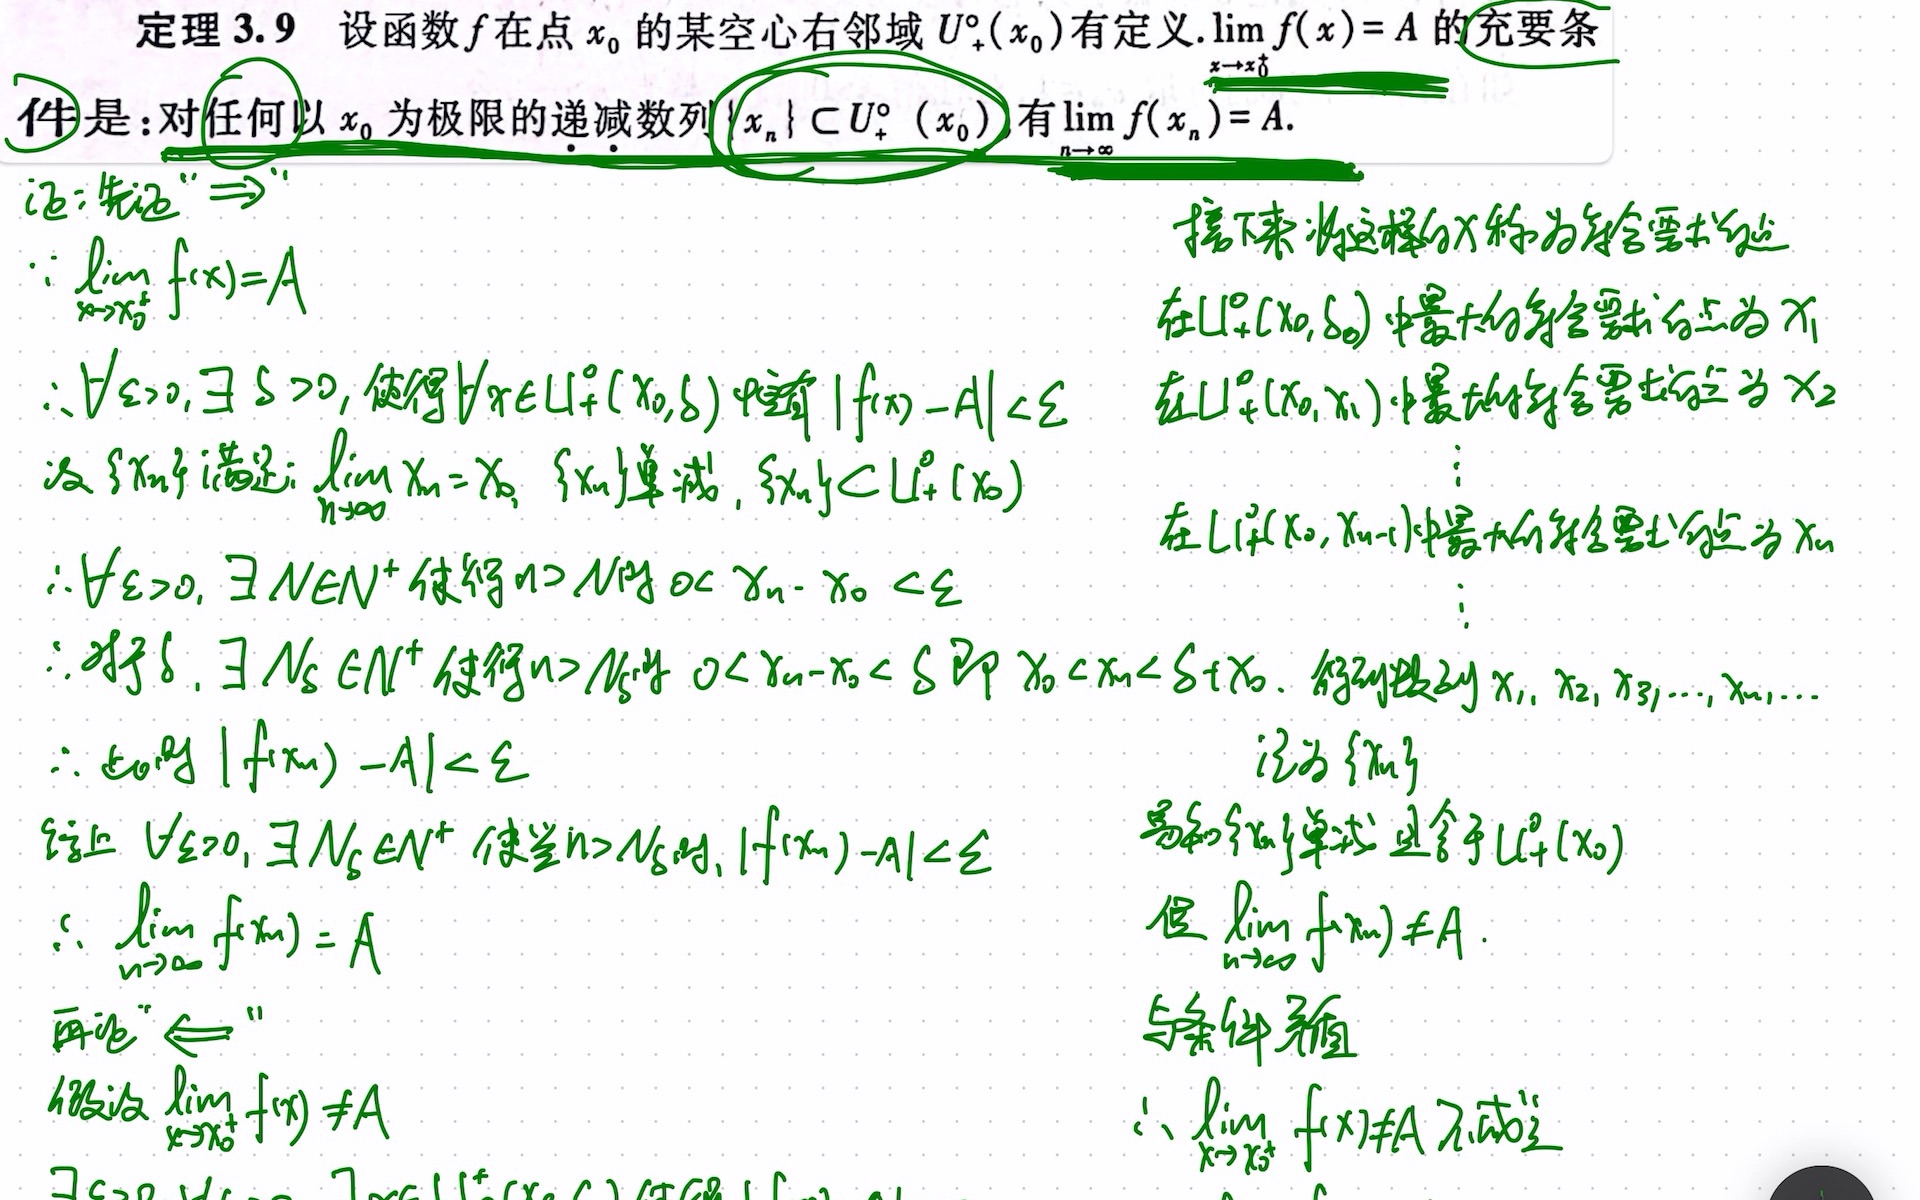 定理 3.9 设函数 f 在点 x₀ 的某空心右邻域 U°₊(x₀)有定义. lim_{x→x₀⁺} f(x) = A 的充要条
件是:对任何以 x₀ 为极限的递减数列{xₙ}⊂U°₊(x₀),有 lim_{n→∞} f(xₙ) = A.
证:先证"⇒"
∵ lim_{x→x₀⁺} f(x)=A
∴∀ε>0,∃δ>0,使得∀x∈U°₊(x₀,δ) 中 |f(x)-A|<ε
设{xₙ}满足: lim_{n→∞} xₙ=x₀, {xₙ}单减, {xₙ}⊂U°₊(x₀)
∴∀ε>0, ∃N∈N⁺ 使得n>N时 0<xₙ-x₀<ε
∴对于δ, ∃N_δ∈N⁺ 使得n>N_δ时 0<xₙ-x₀<δ 即 x₀<xₙ<δ+x₀.
∴ 此时 |f(xₙ)-A|<ε
综上 ∀ε>0,∃N_δ∈N⁺ 使当n>N_δ时, |f(xₙ)-A|<ε
∴ lim_{n→∞} f(xₙ)=A
再证"⇐"
假设 lim_{x→x₀⁺} f(x)≠A
接下来将这样的x称为符合要求的点
在U°₊(x₀,δ₀)中最大的符合要求的点为x₁
在U°₊(x₀,x₁)中最大的符合要求的点为x₂
⋮
在U°₊(x₀,xₙ₋₁)中最大的符合要求的点为xₙ
⋮
得到数列 x₁, x₂, x₃, …, xₙ, …
记为{xₙ}
易知{xₙ}单减且含于U°₊(x₀)
但 lim_{n→∞} f(xₙ)≠A.
与条件矛盾
∴ lim_{x→x₀⁺} f(x)≠A 不成立